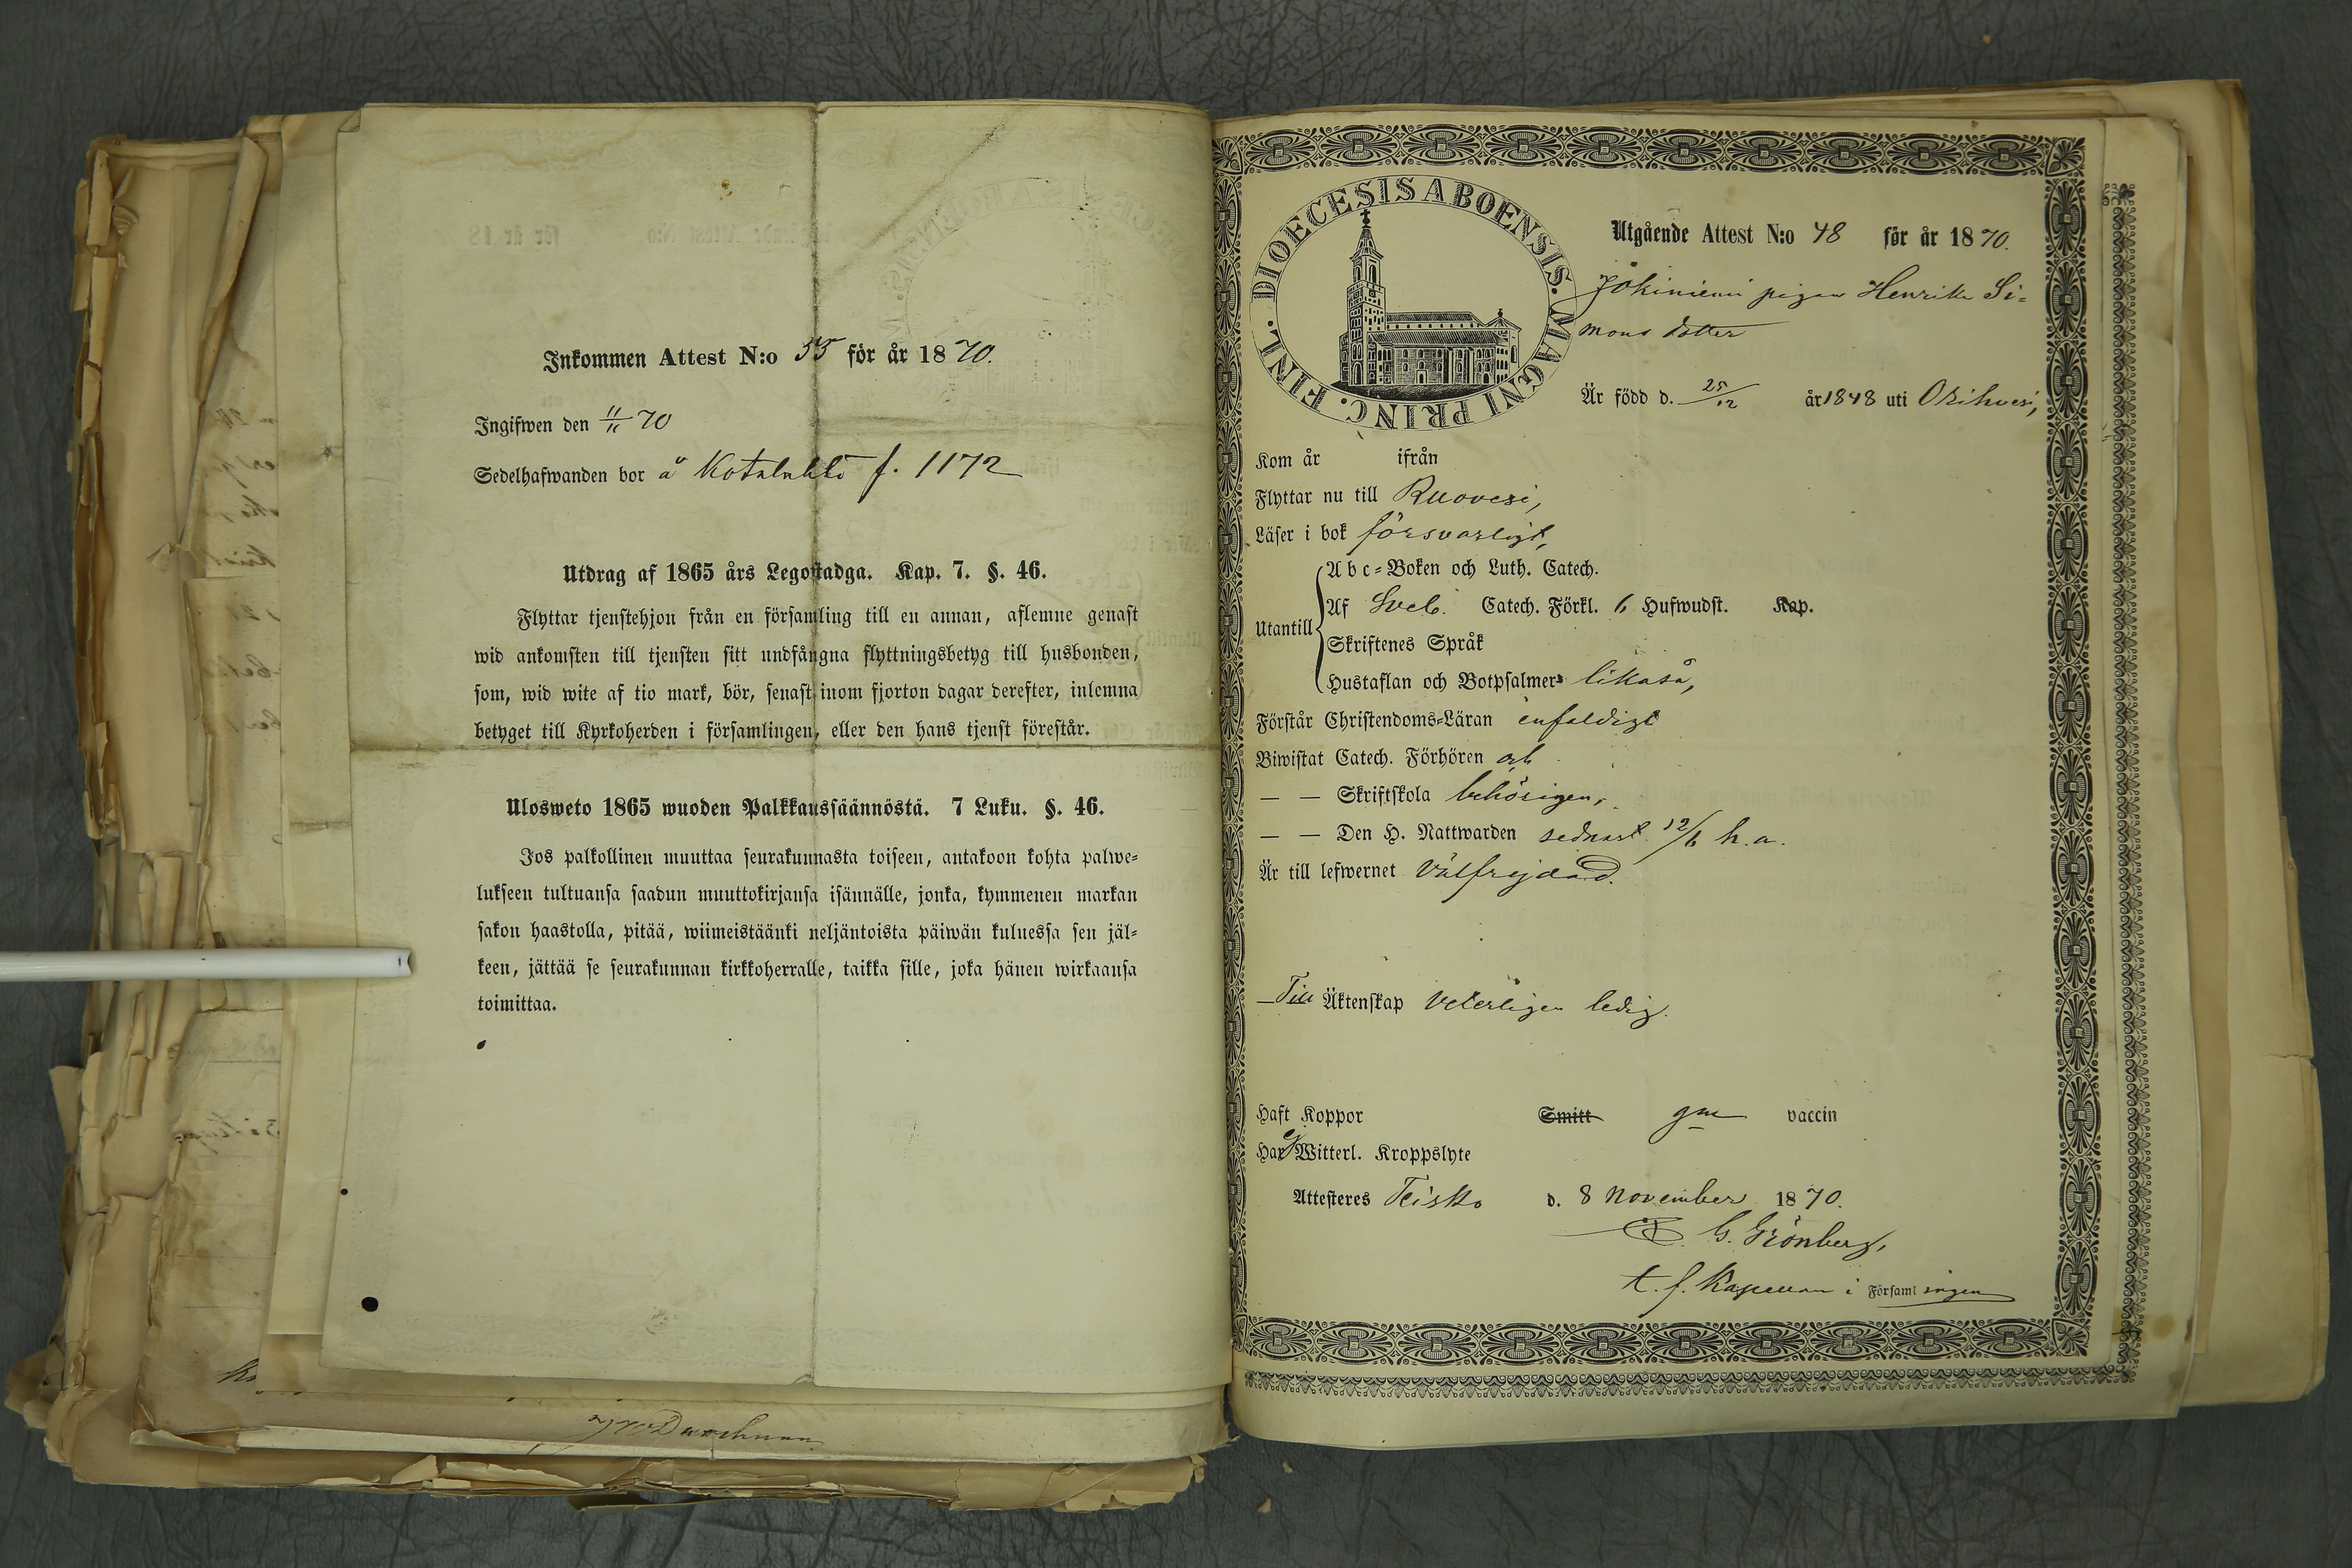 Inkommen Attest N:o 55 för år 1870.
Ingifwen den 11/11 70
Sedelhafwanden bor å Kotalahti f. 1172
Utdrag af 1865 års Legostadga. Kap. 7. §. 46.
Flyttar tjenstehjon från en församling till en annan, aflemne genast
wid ankomsten till tjensten sitt undfångna flyttningsbetyg till husbonden,
som, wid wite af tio mark, bör, senast inom fjorton dagar derefter, inlemna
betyget till Kyrkoherden i församlingen, eller den hans tjenst förestår.
Ulosweto 1865 wuoden Palkkaussäännöstä. 7 Luku. §. 46.
Jos palkollinen muuttaa seurakunnasta toiseen, antakoon kohta palwe-
lukseen tultuansa saadun muuttokirjansa isännälle, jonka, kymmenen markan
sakon haastolla, pitää, wiimeistäänki neljäntoista päiwän kuluessa sen jäl-
keen, jättää se seurakunnan kirkkoherralle, taikka sille, joka hänen wirkaansa
toimittaa.
DIOECESIS ABOENSIS. MAGNI PRINC. FINL.
Utgående Attest N:o 48 för år 1870.
Jokiniemi pigan Henrika Si-
mons dotter
Är född d. 25/12 år 1848 uti Orihvesi,
Kom år ifrån
Flyttar nu till Ruovesi,
Läser i bok försvarligt,
Abc-Boken och Luth. Catech.
Utantill Af Sveb. Catech. Förkl. 6 Hufwudst. Kap.
Skriftenes Språk
Hustaflan och Botpsalmer likaså,
Förstår Christendoms-Läran enfaldigt
Biwistat Catech. Förhören och
— — Skriftskola behörigen,
— — Den H. Nattwarden sednast 12/6 h.a.
Är till lefwernet välfrejdad.
Till Äktenskap veterligen ledig.
Haft Koppor Smitt gm vaccin
Har ej Witterl. Kroppslyte
Attesteres Teisko d. 8 November 1870.
G. Grönberg,
t. f. Kapellan i Församlingen